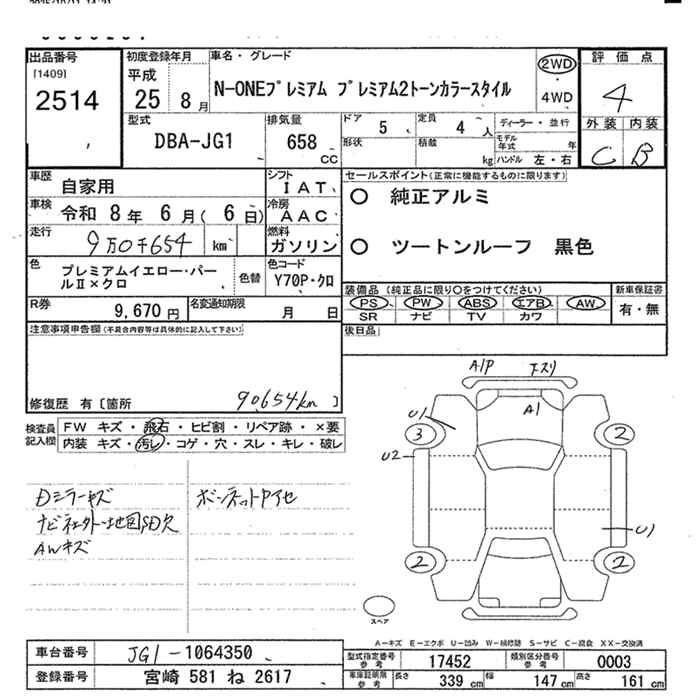 出品番号
[1409]
2514
初度登録年月
平成
25 8月
車名・グレード
N-ONEプレミアム プレミアム2トーンカラースタイル
2WD
4WD
評価点
4
外装 内装
C B
型式
DBA-JG1
排気量
658
CC
ドア
5
定員
4 人
形状
積載
kg
ディーラー・並行
モデル年式 年
ハンドル 左・右
車歴
自家用
シフト
IAT
車検
令和 8年 6月( 6日)
冷房
AAC
走行
9万0千654 km
燃料
ガソリン
色
プレミアムイエロー・パールⅡ×クロ
色替
色コード
Y70P・クロ
R券
9,670 円
名変通知期限
月 日
セールスポイント(正常に機能するものに限ります)
○ 純正アルミ
○ ツートンルーフ 黒色
装備品(純正品に限り○をつけてください)
PS PW ABS エアB AW
SR ナビ TV カワ
新車保証書
有・無
後日品
注意事項申告欄(不具合内容等は具体的に記入して下さい)
修復歴 有〔箇所 90654km 〕
検査員記入欄
FW キズ・飛石・ヒビ割・リペア跡・×要
内装 キズ・汚レ・コゲ・穴・スレ・キレ・破レ
Dミラーキズ
ナビネクタ外・地図SD欠
AWキズ
ボンネットアセ
A/P 下スリ
A1
U1
3
2
U2
U1
2
2
スペア
A-キズ E-エクボ U-凹み W-補修跡 S-サビ C-腐食 XX-交換済
車台番号
JG1-1064350
登録番号
宮崎 581 ね 2617
型式指定番号
参考
17452
類別区分番号
参考
0003
車庫証明用
参考
長さ
339 cm
幅
147 cm
高さ
161 cm